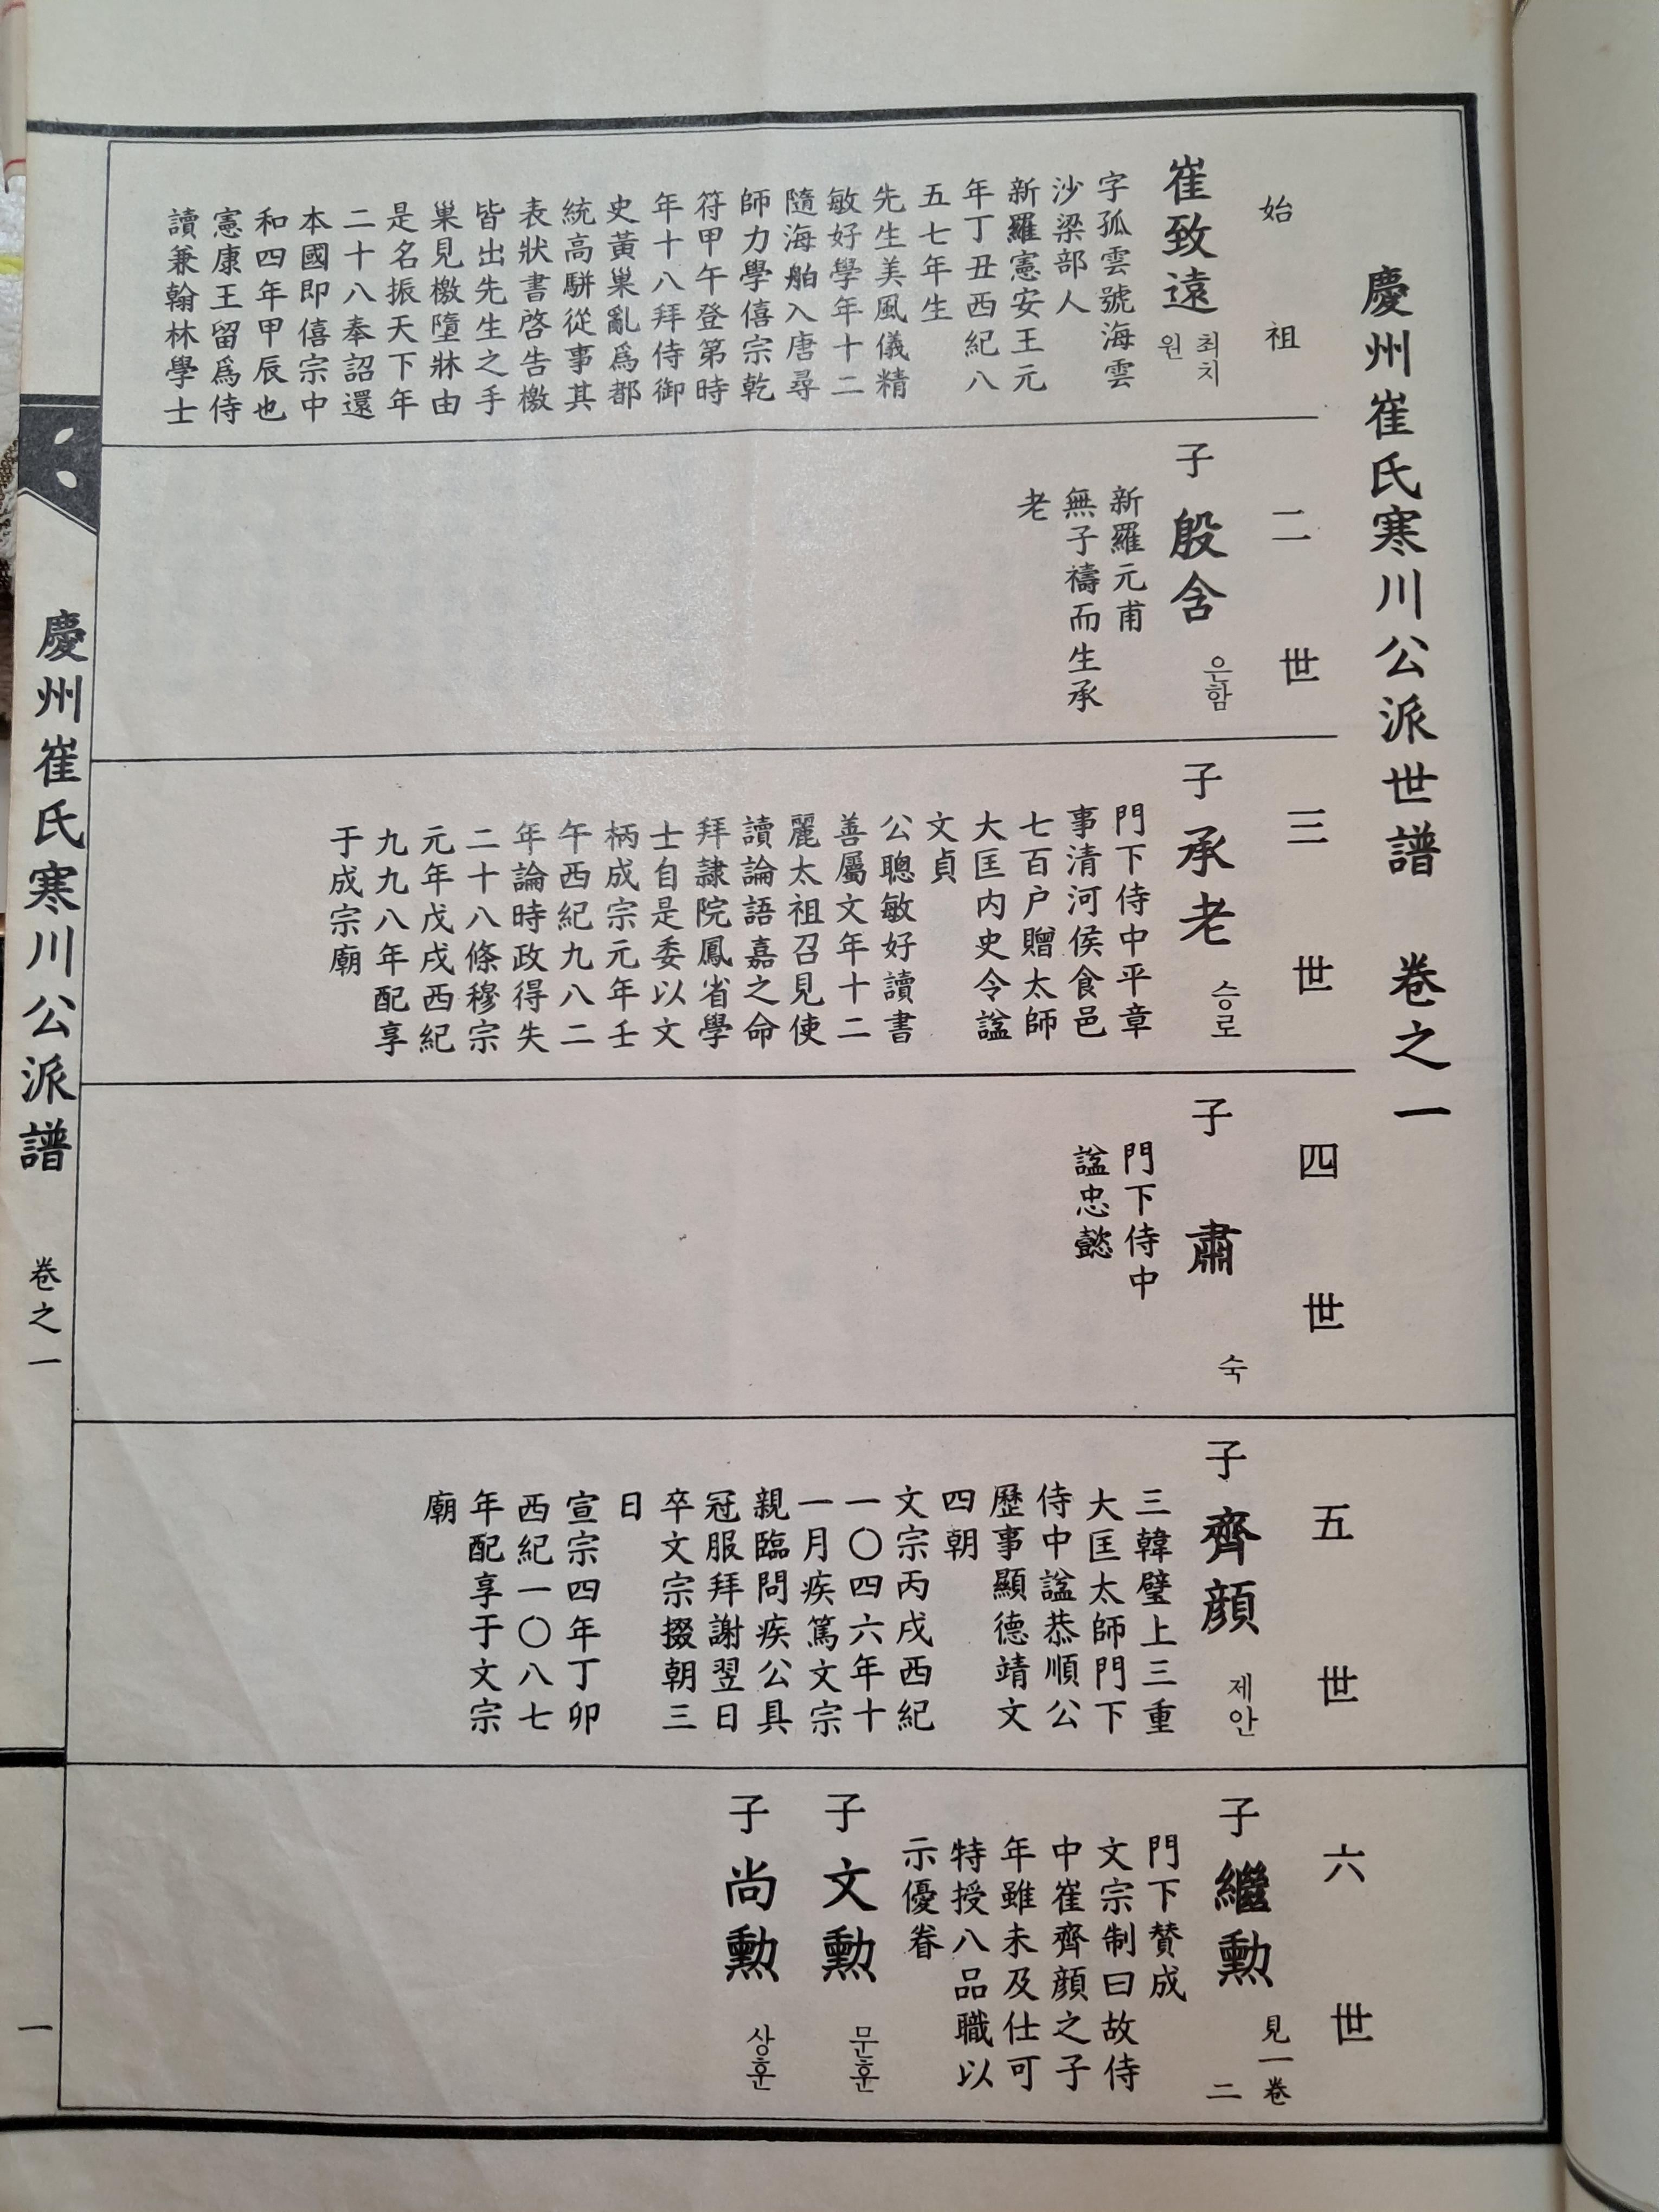 慶州崔氏寒川公派世譜 卷之一
始祖
崔致遠 최치원
字孤雲號海雲
沙梁部人
新羅憲安王元
年丁丑西紀八
五七年生
先生美風儀精
敏好學年十二
隨海舶入唐尋
師力學僖宗乾
符甲午登第時
年十八拜侍御
史黃巢亂爲都
統高騈從事其
表狀書啓告檄
皆出先生之手
巢見檄墮牀由
是名振天下年
二十八奉詔還
本國即僖宗中
和四年甲辰也
憲康王留爲侍
讀兼翰林學士
二世
子 殷含 은함
新羅元甫
無子禱而生承
老
三世
子 承老 승로
門下侍中平章
事清河侯食邑
七百户贈太師
大匡内史令諡
文貞
公聰敏好讀書
善屬文年十二
麗太祖召見使
讀論語嘉之命
拜隷院鳳省學
士自是委以文
柄成宗元年壬
午西紀九八二
年論時政得失
二十八條穆宗
元年戊戌西紀
九九八年配享
于成宗廟
四世
子 肅 숙
門下侍中
諡忠懿
五世
子 齊顔 제안
三韓璧上三重
大匡太師門下
侍中諡恭順公
歷事顯德靖文
四朝
文宗丙戌西紀
一〇四六年十
一月疾篤文宗
親臨問疾公具
冠服拜謝翌日
卒文宗掇朝三
日
宣宗四年丁卯
西紀一〇八七
年配享于文宗
廟
六世
子 繼勳 見一卷二
門下賛成
文宗制曰故侍
中崔齊顔之子
年雖未及仕可
特授八品職以
示優眷
子 文勳 문훈
子 尚勳 상훈
慶州崔氏寒川公派譜 卷之一
一